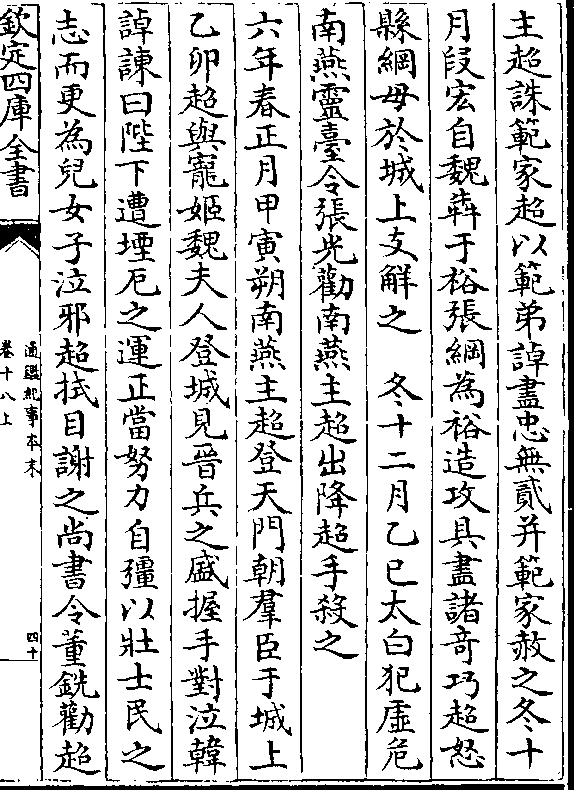 主超誅範家超以範弟諱盡忠無貳并範家赦之冬十
月段宏自魏犇于裕張綱為裕造攻具盡諸奇巧超怒
縣綱母於城上支解之　冬十二月乙巳太白犯虛危
南燕靈臺令張光勸南燕主超出降超手殺之
六年春正月甲寅朔南燕主超登天門朝羣臣于城上
乙卯超與寵姬魏夫人登城見晉兵之盛握手對泣韓
諱諫曰陛下遭堙厄之運正當努力自彊以壯士民之
志而更為兒女子泣邪超拭目謝之尚書令董銑勸超
欽定四庫全書
通鑑紀事本末
卷十八上
四十